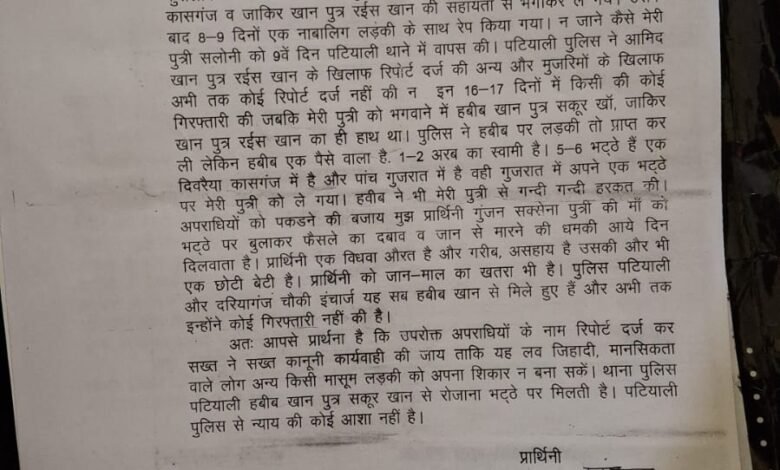 कासगंज व जाकिर खान पुत्र रईस खान की सहायता से भगाकर ले
बाद 8–9 दिनों एक नाबालिग लड़की के साथ रेप किया गया। न जाने कैसे मेरी
पुत्री सलोनी को 9वें दिन पटियाली थाने में वापस की। पटियाली पुलिस ने आमिद
खान पुत्र रईस खान के खिलाफ रिपोर्ट दर्ज की अन्य और मुजरिमों के खिलाफ
अभी तक कोई रिपोर्ट दर्ज नहीं की न इन 16–17 दिनों में किसी की कोई
गिरफ्तारी की जबकि मेरी पुत्री को भगवाने में हबीब खान पुत्र सकूर खॉ, जाकिर
खान पुत्र रईस खान का ही हाथ था। पुलिस ने हबीब पर लड़की तो प्राप्त कर
ली लेकिन हबीब एक पैसे वाला है. 1–2 अरब का स्वामी है। 5–6 भट्ठे हैं एक
दिवरैया कासगंज में है और पांच गुजरात में है वही गुजरात में अपने एक भट्ठे
पर मेरी पुत्री को ले गया। हवीब ने भी मेरी पुत्री से गन्दी गन्दी हरकत की।
अपराधियों को पकडने की बजाय मुझ प्रार्थिनी गुंजन सक्सेना पुत्री की माँ को
भट्ठे पर बुलाकर फैसले का दबाव व जान से मारने की धमकी आये दिन
दिलवाता है। प्रार्थिनी एक विधवा औरत है और गरीब, असहाय है उसकी और भी
एक छोटी बेटी है। प्रार्थिनी को जान-माल का खतरा भी है। पुलिस पटियाली
और दरियागंज चौकी इंचार्ज यह सब हबीब खान से मिले हुए हैं और अभी तक
इन्होंने कोई गिरफ्तारी नहीं की है।
अतः आपसे प्रार्थना है कि उपरोक्त अपराधियों के नाम रिपोर्ट दर्ज कर
सख्त ने सख्त कानूनी कार्यवाही की जाय ताकि यह लव जिहादी, मानसिकता
वाले लोग अन्य किसी मासूम लड़की को अपना शिकार न बना सकें। थाना पुलिस
पटियाली हबीब खान पुत्र सकूर खान से रोजाना भट्ठे पर मिलती है। पटियाली
पुलिस से न्याय की कोई आशा नहीं है।
प्रार्थिनी